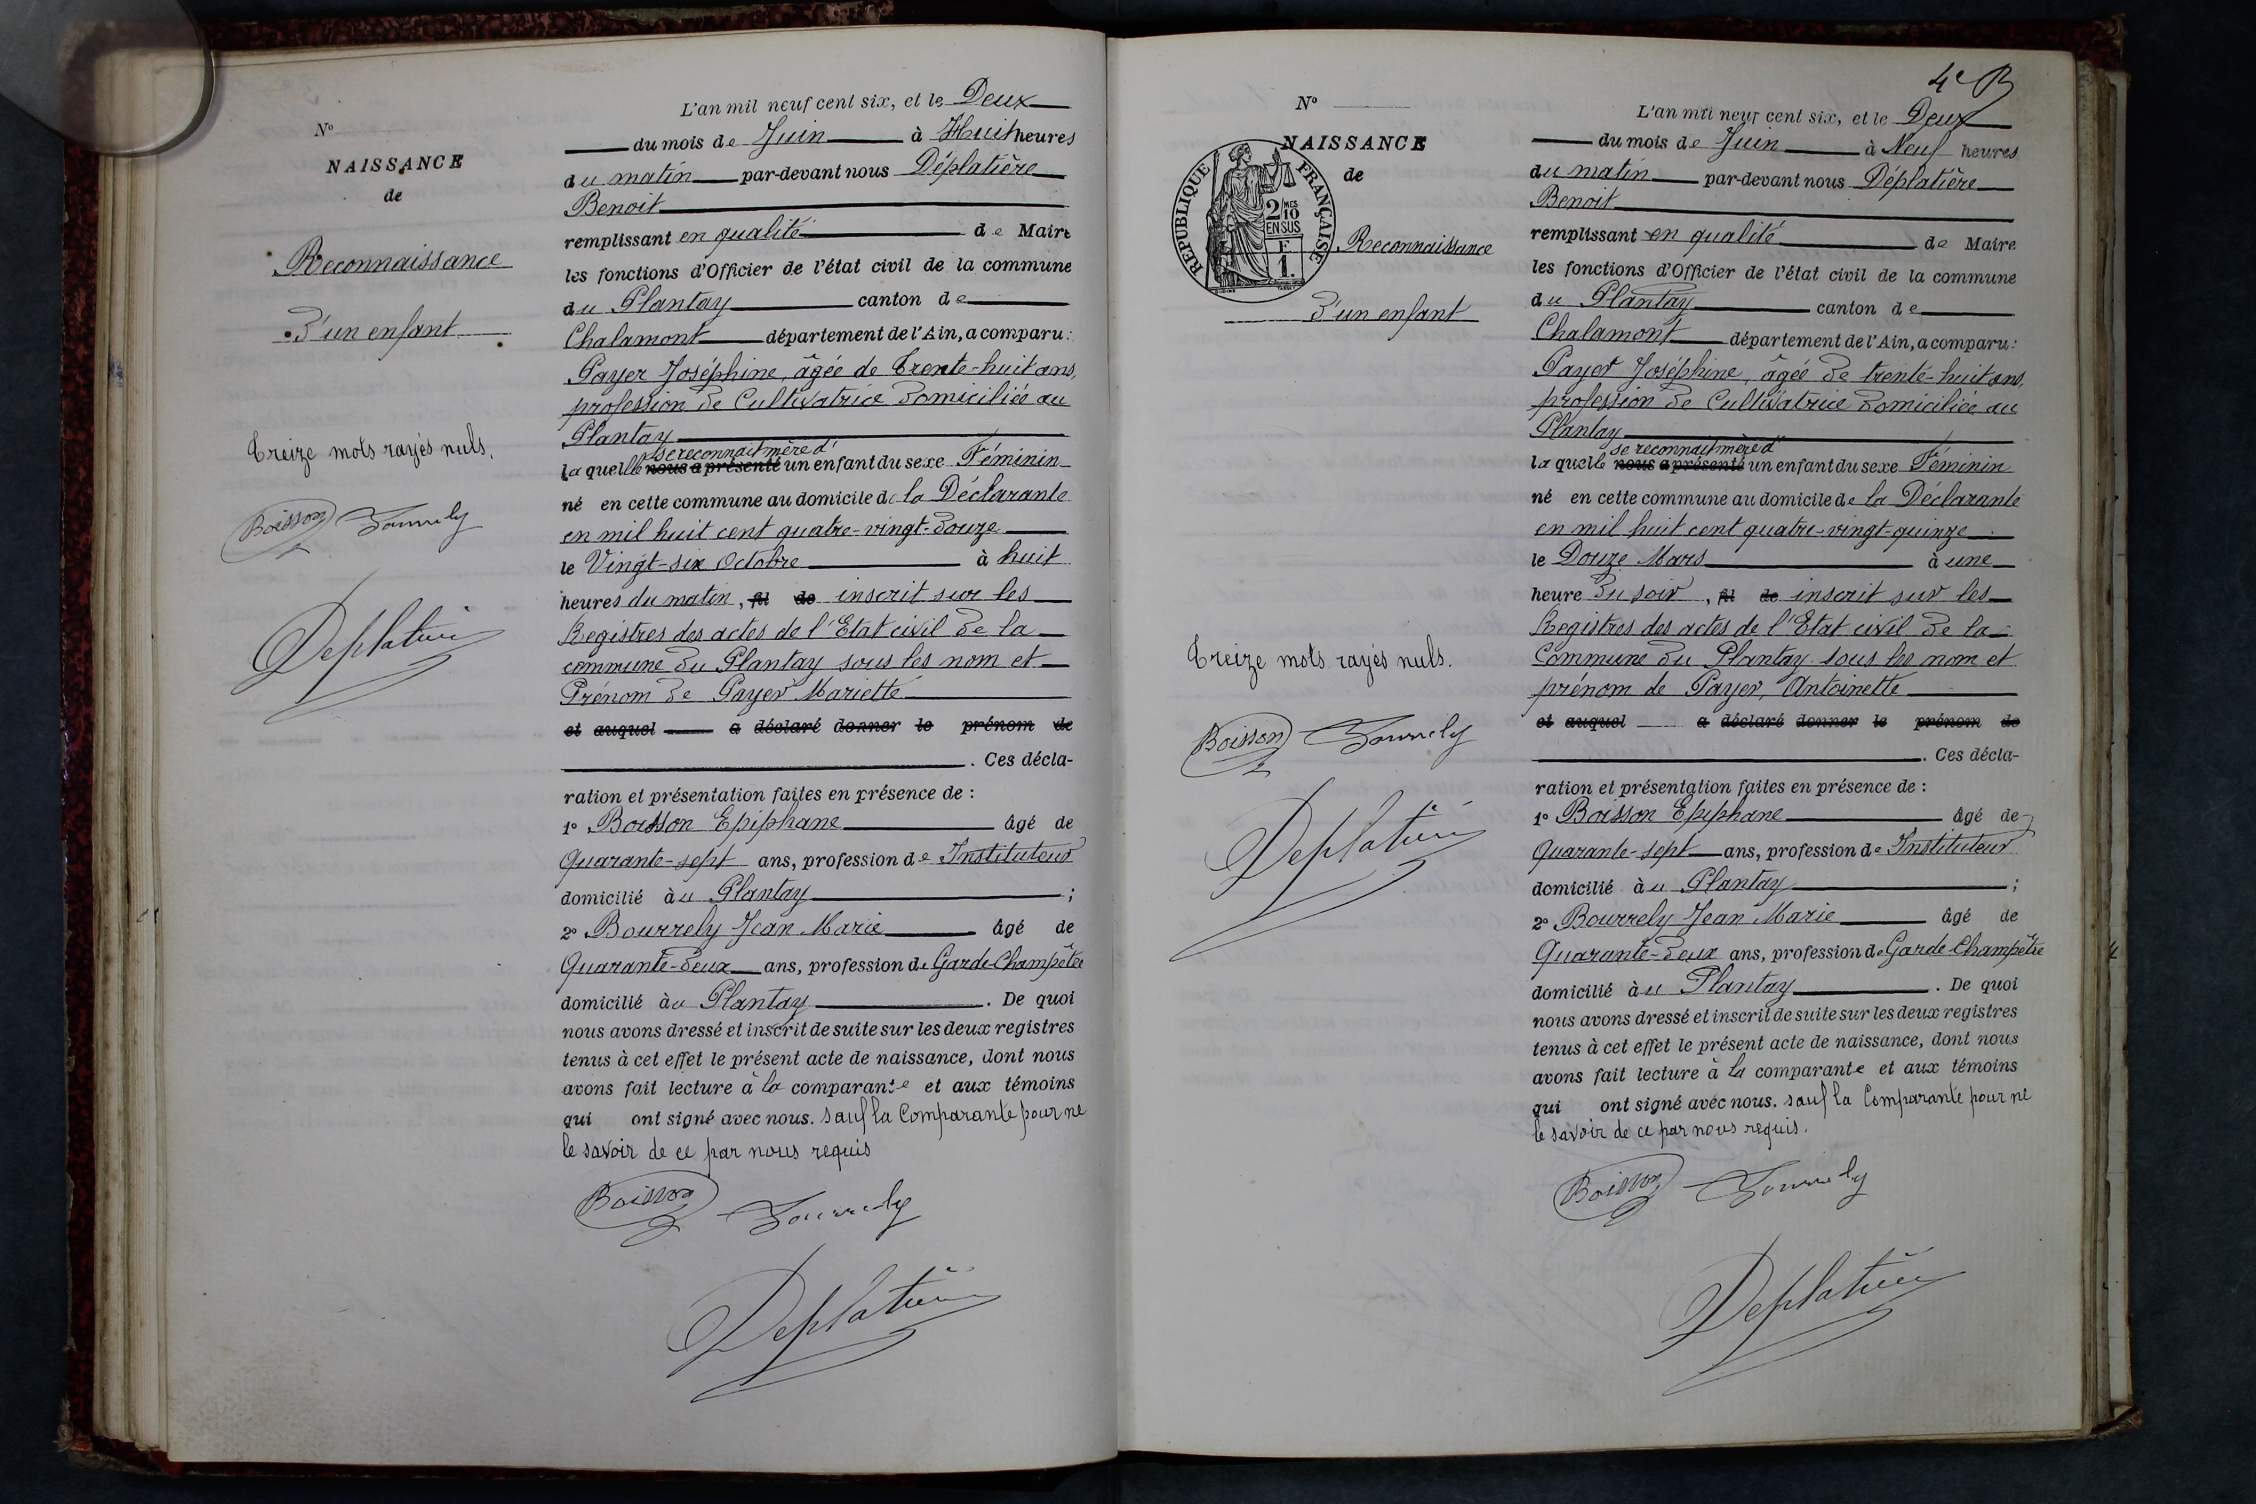 N°
NAISSANCE
de
Reconnaissance
d'un enfant
Treize mots rayés nuls.
Boisson Bourrely
Deplatière
L'an mil neuf cent six, et le Deux
du mois de Juin à Huit heures
du matin par-devant nous Déplatière
Benoit
remplissant en qualité de Maire
les fonctions d'Officier de l'état civil de la commune
du Plantay canton de
Chalamont département de l'Ain, a comparu :
Payer Joséphine, âgée de trente-huit ans,
profession de Cultivatrice domiciliée au
Plantay
se reconnait mère d'
laquelle nous a présenté un enfant du sexe Féminin
né en cette commune au domicile de la Déclarante
en mil huit cent quatre-vingt-douze
le Vingt-six Octobre à huit
heures du matin, fil de inscrit sur les
Registres des actes de l'Etat civil de la
commune du Plantay sous les nom et
Prénom de Payer Mariette
et auquel a déclaré donner le prénom de
. Ces décla-
ration et présentation faites en présence de :
1° Boisson Epiphane âgé de
Quarante-sept ans, profession de Instituteur
domicilié au Plantay ;
2° Bourrely Jean Marie âgé de
Quarante-deux ans, profession de Garde-Champêtre
domicilié au Plantay . De quoi
nous avons dressé et inscrit de suite sur les deux registres
tenus à cet effet le présent acte de naissance, dont nous
avons fait lecture à la comparante et aux témoins
qui ont signé avec nous. sauf la Comparante pour ne
le savoir de ce par nous requis
Boisson Bourrely
Deplatière
4e B
N°
NAISSANCE
de
RÉPUBLIQUE FRANÇAISE
2/10 MES
EN SUS
F
1.
Reconnaissance
d'un enfant
Treize mots rayés nuls.
Boisson Bourrely
Deplatière
L'an mil neuf cent six, et le Deux
du mois de Juin à Neuf heures
du matin par-devant nous Déplatière
Benoit
remplissant en qualité de Maire
les fonctions d'Officier de l'état civil de la commune
du Plantay canton de
Chalamont département de l'Ain, a comparu :
Payer Joséphine, âgée de trente-huit ans,
profession de Cultivatrice domiciliée au
Plantay
se reconnait mère d'
laquelle nous a présenté un enfant du sexe Féminin
né en cette commune au domicile de la Déclarante
en mil huit cent quatre-vingt-quinze
le Douze Mars à une
heure du soir, fil de inscrit sur les
Registres des actes de l'Etat civil de la
Commune du Plantay sous les nom et
prénom de Payer, Antoinette
et auquel a déclaré donner le prénom de
. Ces décla-
ration et présentation faites en présence de :
1° Boisson Epiphane âgé de
Quarante-sept ans, profession de Instituteur
domicilié au Plantay ;
2° Bourrely Jean Marie âgé de
Quarante-deux ans, profession de Garde-Champêtre
domicilié au Plantay . De quoi
nous avons dressé et inscrit de suite sur les deux registres
tenus à cet effet le présent acte de naissance, dont nous
avons fait lecture à la comparante et aux témoins
qui ont signé avec nous. sauf la Comparante pour ne
le savoir de ce par nous requis.
Boisson Bourrely
Deplatière